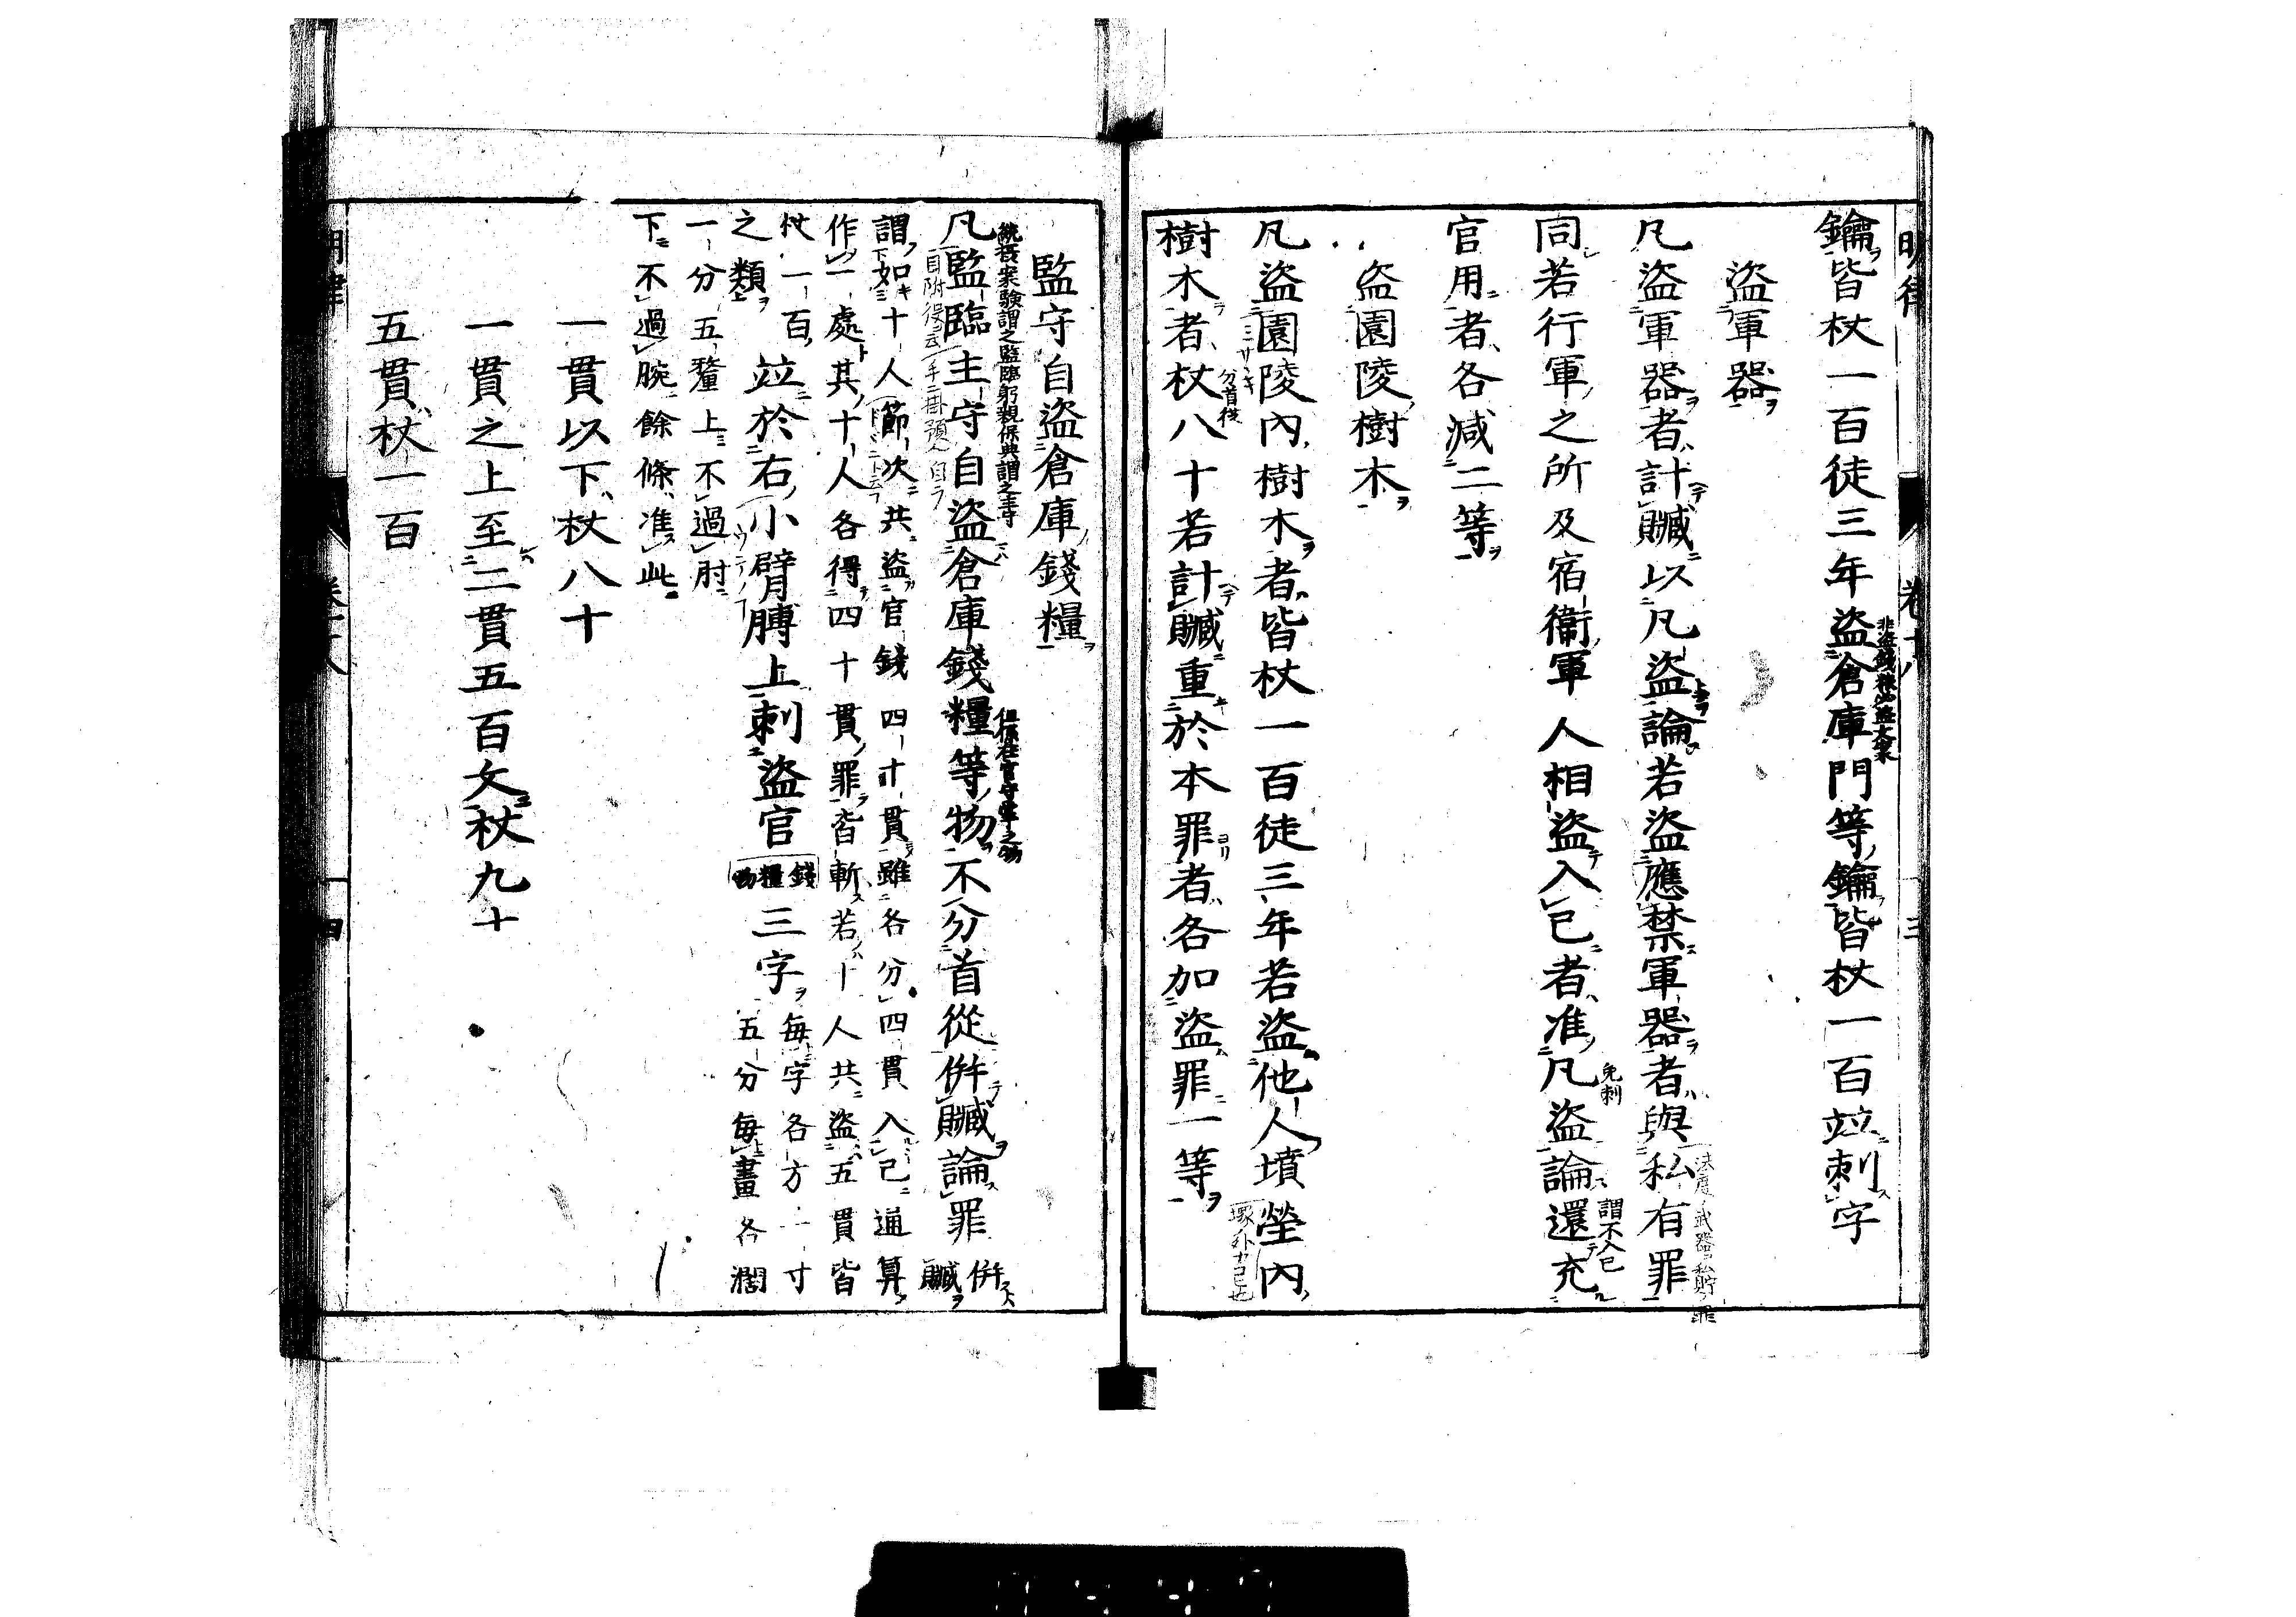 鑰皆杖一百徒三年盜倉庫門等鑰皆杖一百竝刺字
盜軍器
凡盜軍器者計贓以凡盜論若盜應禁軍器者與私有罪
免刺
同若行軍之所及宿衞軍人相盜入己者准凡盜論還充
謂不入己
官用者各減二等
盜園陵樹木
凡盜園陵內樹木者皆杖一百徒三年若盜他人墳塋內
分首從
樹木者杖八十若計贓重於本罪者各加盜罪一等
監守自盜倉庫錢糧
統攝案驗謂之監臨躬親保典謂之主守
凡監臨主守自盜倉庫錢糧等物不分首從併贓論罪 併贓
謂如十人節次共盜官錢四十貫雖各分四貫入己通算
作一處其十人各得四十貫罪皆斬若十人共盜五貫皆
杖一百
之類 竝於右小臂膊上刺盜官 錢糧物 三字 每字各方一寸
五分每畫各濶
一分五釐上不過肘
下不過腕餘條准此
一貫以下杖八十
一貫之上至二貫五百文杖九十
五貫杖一百
明律 卷十八 三
明律 卷十八 四